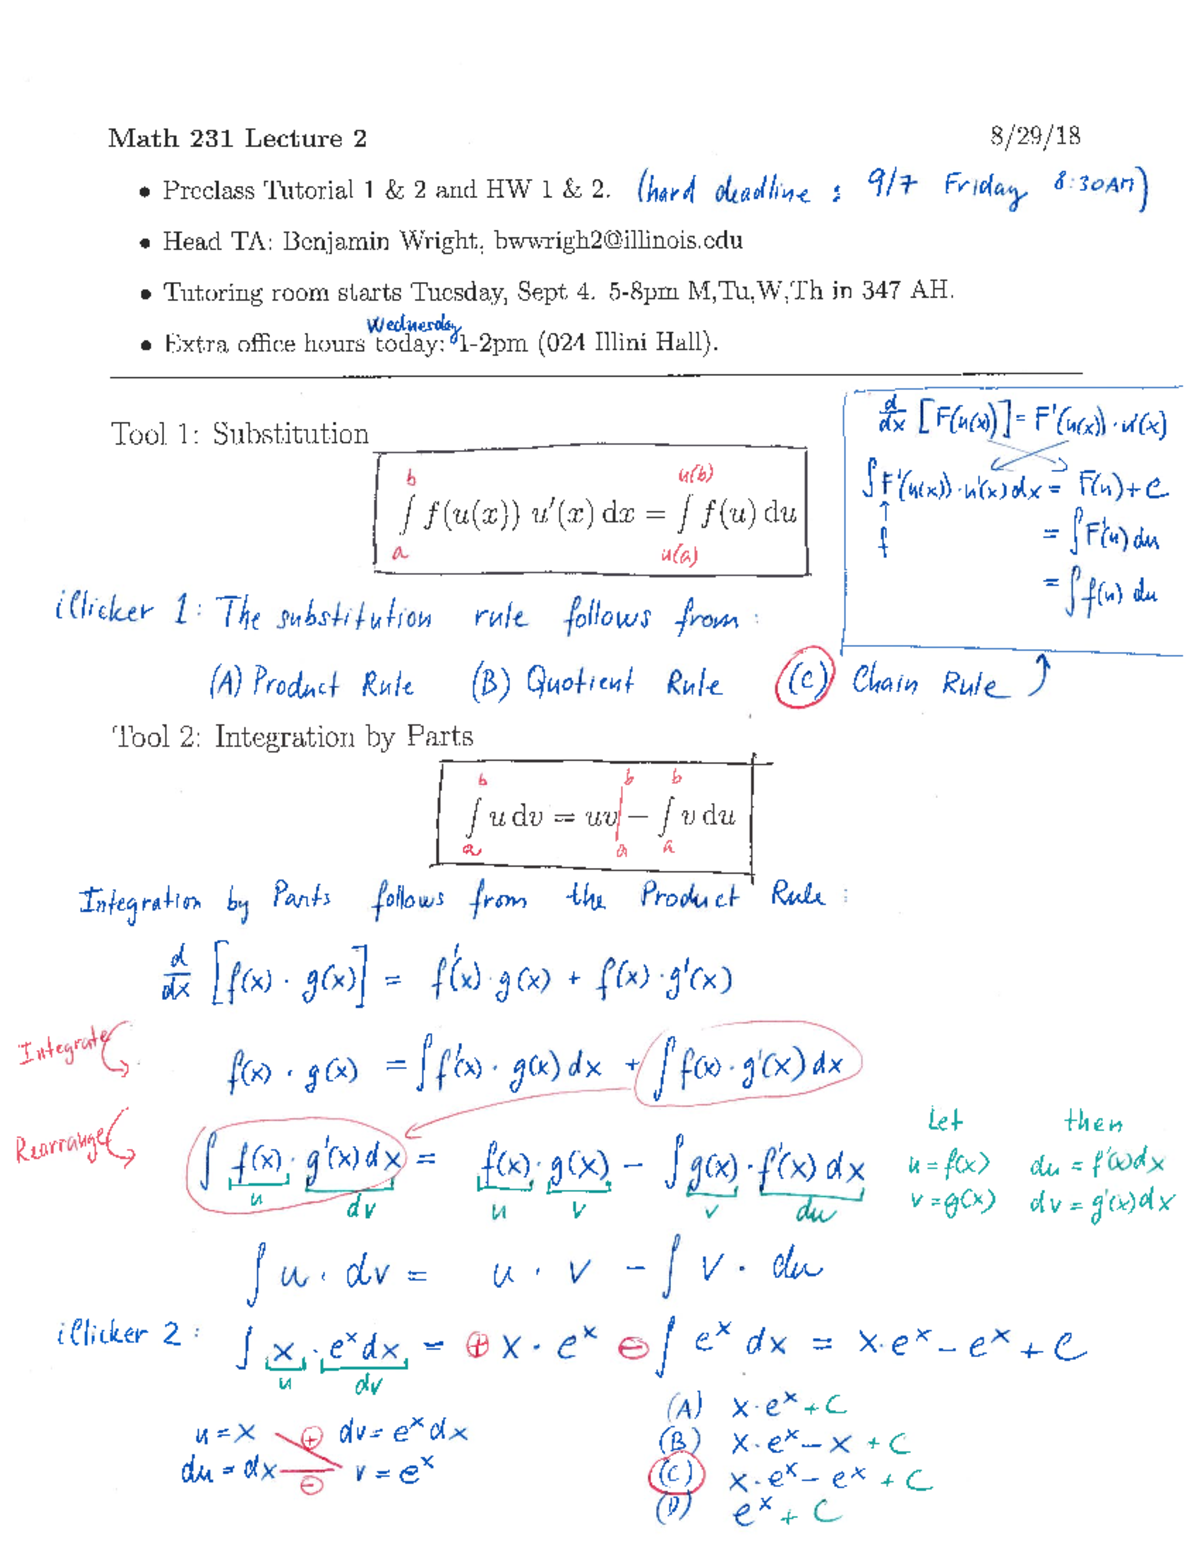 Math 231 Lecture 2 8/29/18
• Preclass Tutorial 1 & 2 and HW 1 & 2. (hard deadline : 9/7 Friday 8:30AM)
• Head TA: Benjamin Wright, bwwrigh2@illinois.edu
• Tutoring room starts Tuesday, Sept 4. 5-8pm M,Tu,W,Th in 347 AH.
Wednesday
• Extra office hours today: 1-2pm (024 Illini Hall).
d/dx [F(u(x))] = F'(u(x)) · u'(x)
∫ F'(u(x)) · u'(x) dx = F(u) + C
↑ f
= ∫ F'(u) du
= ∫ f(u) du
Tool 1: Substitution
∫_a^b f(u(x)) u'(x) dx = ∫_{u(a)}^{u(b)} f(u) du
iClicker 1: The substitution rule follows from:
(A) Product Rule (B) Quotient Rule (C) Chain Rule
Tool 2: Integration by Parts
∫_a^b u dv = uv|_a^b − ∫_a^b v du
Integration by Parts follows from the Product Rule :
d/dx [f(x) · g(x)] = f'(x) · g(x) + f(x) · g'(x)
Integrate
f(x) · g(x) = ∫ f'(x) · g(x) dx + ∫ f(x) · g'(x) dx
Rearrange
∫ f(x) · g'(x) dx = f(x) · g(x) − ∫ g(x) · f'(x) dx
u dv u v v du
Let then
u = f(x) du = f'(x)dx
v = g(x) dv = g'(x)dx
∫ u · dv = u · v − ∫ v · du
iClicker 2: ∫ x · e^x dx = ⊕ x · e^x ⊖ ∫ e^x dx = x·e^x − e^x + C
u dv
u = x ⊕ dv = e^x dx
du = dx ⊖ v = e^x
(A) x·e^x + C
(B) x·e^x − x + C
(C) x·e^x − e^x + C
(D) e^x + C